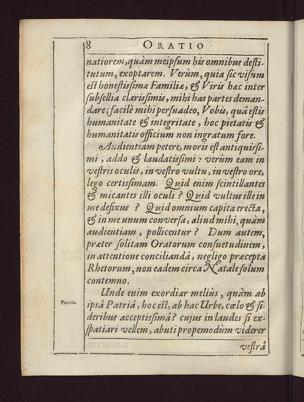 8 ORATIO
natiorem, quàm meipsum his omnibus desti-
tutum, exoptarem. Verùm, quia sic visum
est honestissimæ Familiæ, & Viris hac inter
subsellia clarissimis, mihi has partes deman-
dare; facilè mihi persuadeo, Vobis, quâ estis
humanitate & integritate, hoc pietatis &
humanitatis officium non ingratum fore.
Audientiam petere, moris est antiquissi-
mi, addo & laudatissimi: verùm eam in
vestris oculis, in vestro vultu, in vestro ore,
lego certissimam. Quid enim scintillantes
& micantes illi oculi? Quid vultus ille in
me defixus? Quid omnium capita erecta,
& in me unum conversa, aliud mihi, quàm
audientiam, pollicentur? Dum autem,
præter solitam Oratorum consuetudinem,
in attentione conciliandâ, negligo præcepta
Rhetorum, non eadem circa Natale solum
contemno.
Unde enim exordiar meliùs, quàm ab
Patria. ipsâ Patriâ, hoc est, ab hac Urbe, cœlo & si-
deribus acceptissimâ? cujus in laudes si ex-
spatiari vellem, abuti propemodùm viderer
vestrâ